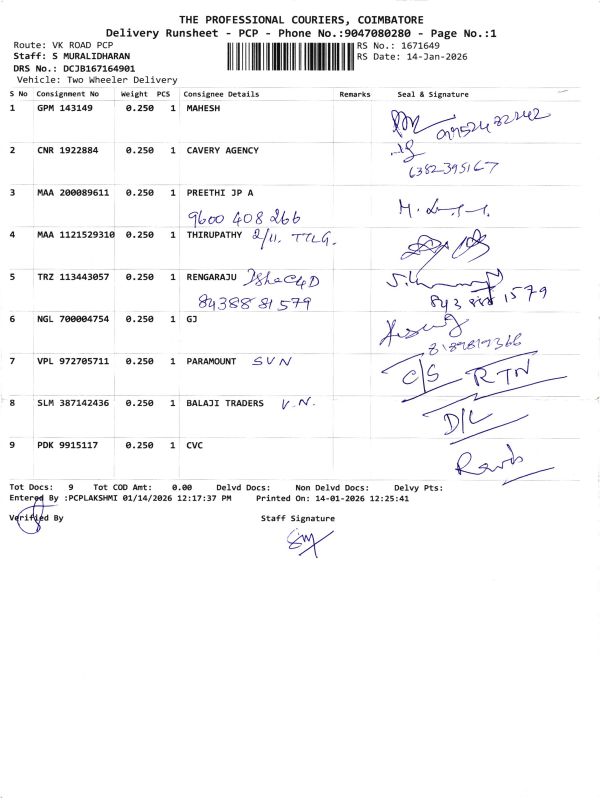 THE PROFESSIONAL COURIERS, COIMBATORE
Delivery Runsheet - PCP - Phone No.:9047080280 - Page No.:1
Route: VK ROAD PCP RS No.: 1671649
Staff: S MURALIDHARAN RS Date: 14-Jan-2026
DRS No.: DCJB167164901
Vehicle: Two Wheeler Delivery
S No Consignment No Weight PCS Consignee Details Remarks Seal & Signature
1 GPM 143149 0.250 1 MAHESH
2 CNR 1922884 0.250 1 CAVERY AGENCY
6382395167
3 MAA 200089611 0.250 1 PREETHI JP A
9600 408 266
4 MAA 1121529310 0.250 1 THIRUPATHY 2/11. TTLG.
5 TRZ 113443057 0.250 1 RENGARAJU
84388 81579
6 NGL 700004754 0.250 1 GJ
8189819366
7 VPL 972705711 0.250 1 PARAMOUNT SVN C/S RTN
8 SLM 387142436 0.250 1 BALAJI TRADERS V.N. D/L
9 PDK 9915117 0.250 1 CVC
Tot Docs: 9 Tot COD Amt: 0.00 Delvd Docs: Non Delvd Docs: Delvy Pts:
Entered By :PCPLAKSHMI 01/14/2026 12:17:37 PM Printed On: 14-01-2026 12:25:41
Verified By Staff Signature